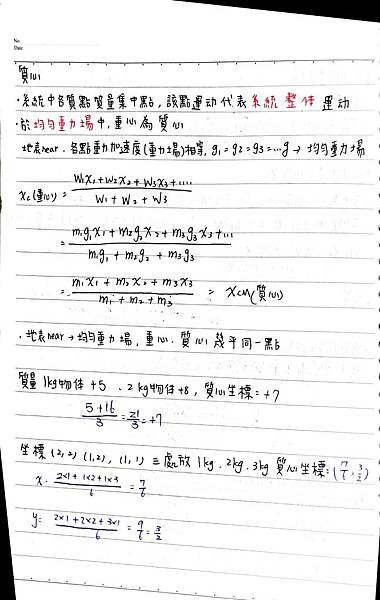 No.
Date.
質心
・系統中各質點質量集中點，該點運动代表系統整体運动
・於均勻重力場中，重心為質心
地表near．各點重力加速度(重力場)相等，g₁=g₂=g₃=…g → 均勻重力場
Xc(重心) = (W₁X₁+W₂X₂+W₃X₃+....)/(W₁+W₂+W₃)
= (m₁g₁X₁+m₂g₂X₂+m₃g₃X₃+...)/(m₁g₁+m₂g₂+m₃g₃)
= (m₁X₁+m₂X₂+m₃X₃)/(m₁+m₂+m₃) = Xcm(質心)
・地表near→均勻重力場，重心．質心幾乎同一點
質量1kg物体+5．2kg物体+8，質心坐標=+7
(5+16)/3=21/3=+7
坐標(2,2)(1,2),(1,1)三處放1kg．2kg．3kg質心坐標=(7/6,3/2)
x. (2×1+1×2+1×3)/6=7/6
y: (2×1+2×2+3×1)/6=9/6=3/2